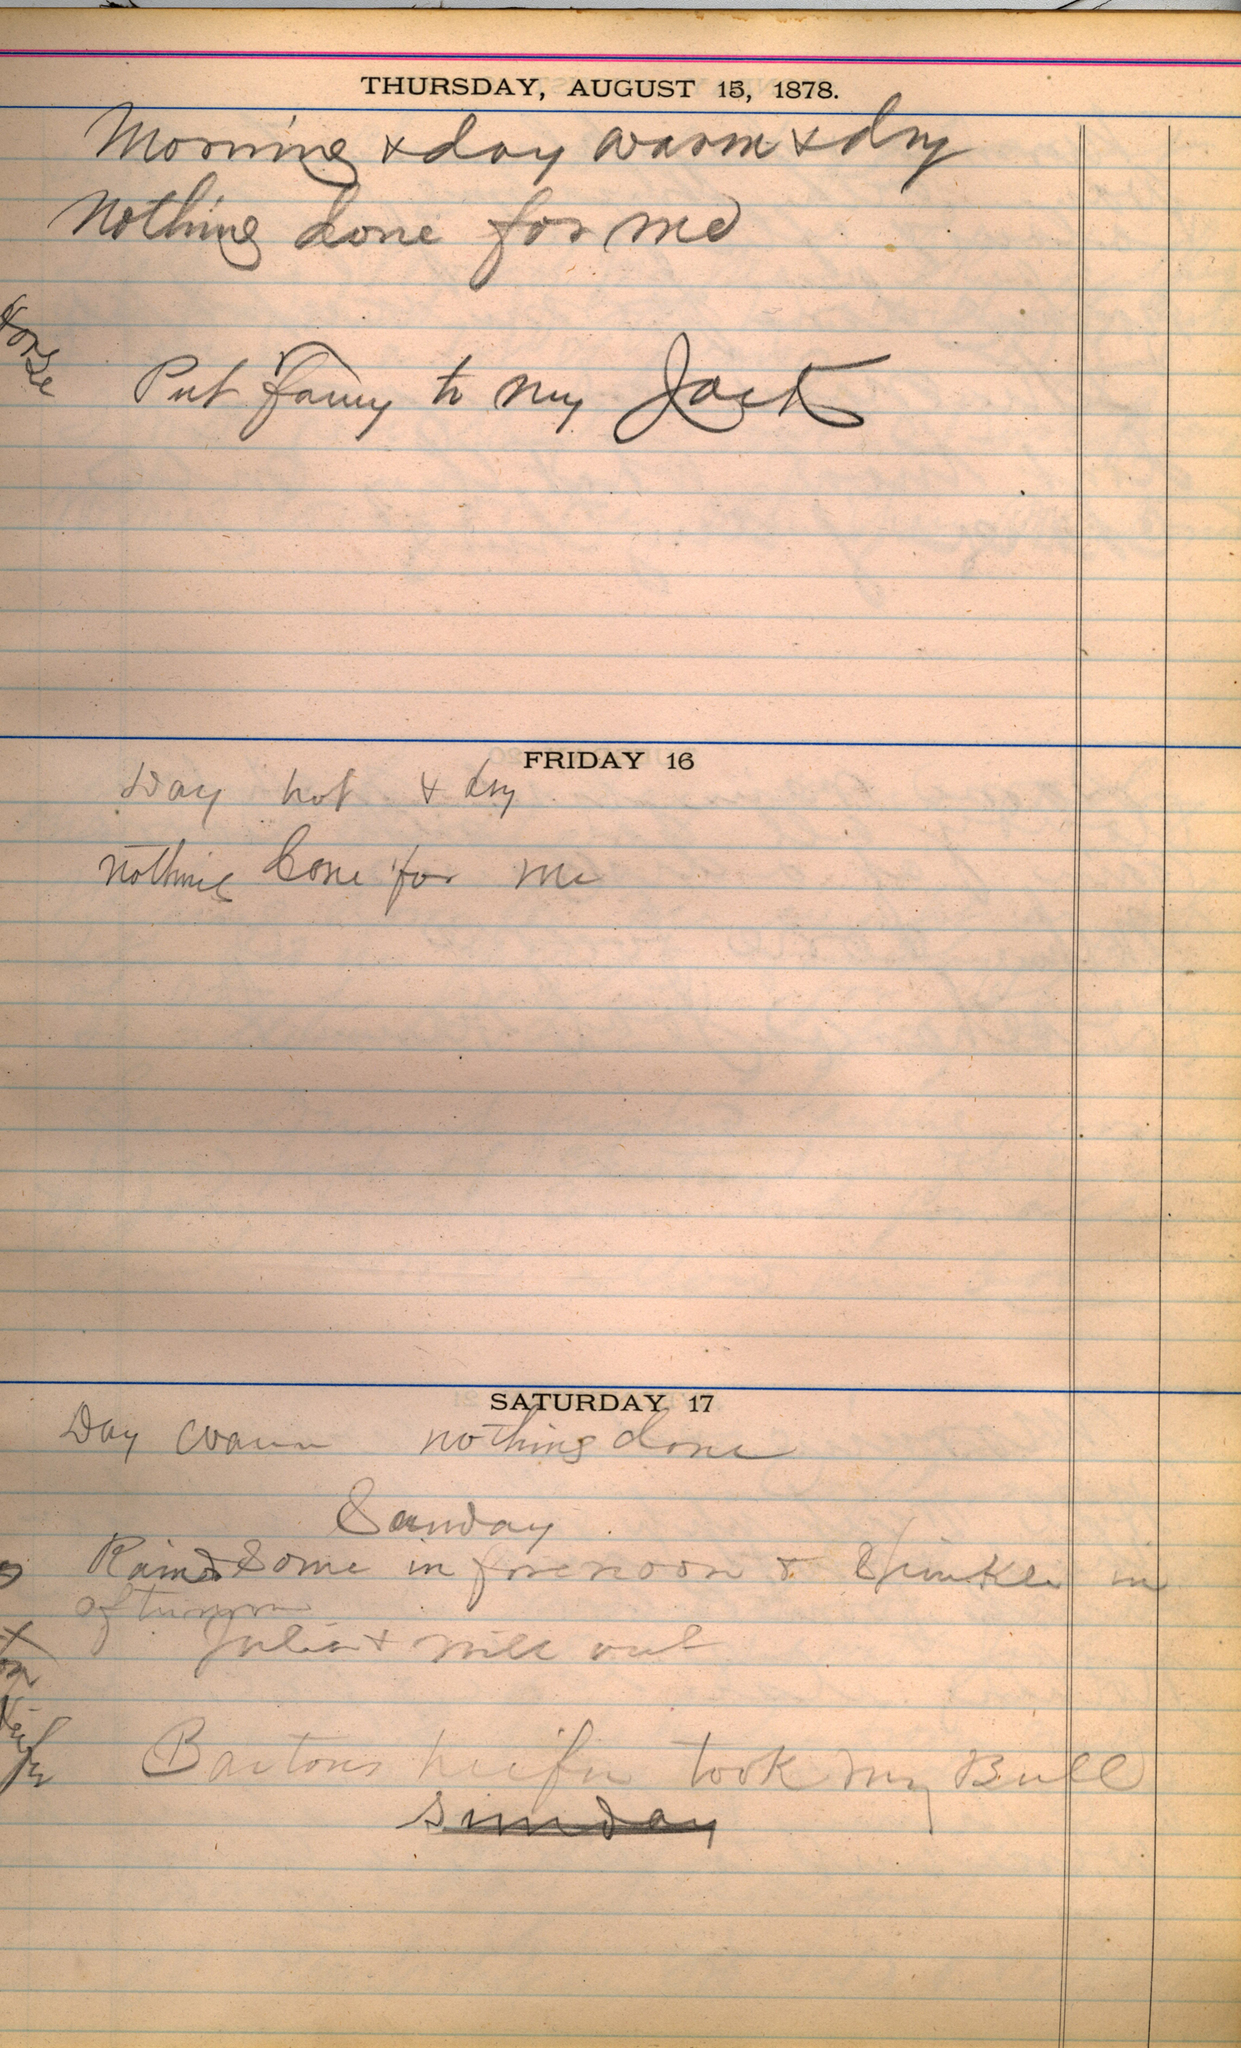 THURSDAY, AUGUST 15, 1878.
Morning & day warm & dry
Nothing done for me
Horse
Put Fanny to my Jack
FRIDAY 16
Day hot & dry
nothing done for me
SATURDAY 17
Day warm nothing done
Sunday
Raind Some in forenoon & Sprinkle in
afternoon
Julia & Will out
Heifer
Bartons heifer took my Bull
Sunday